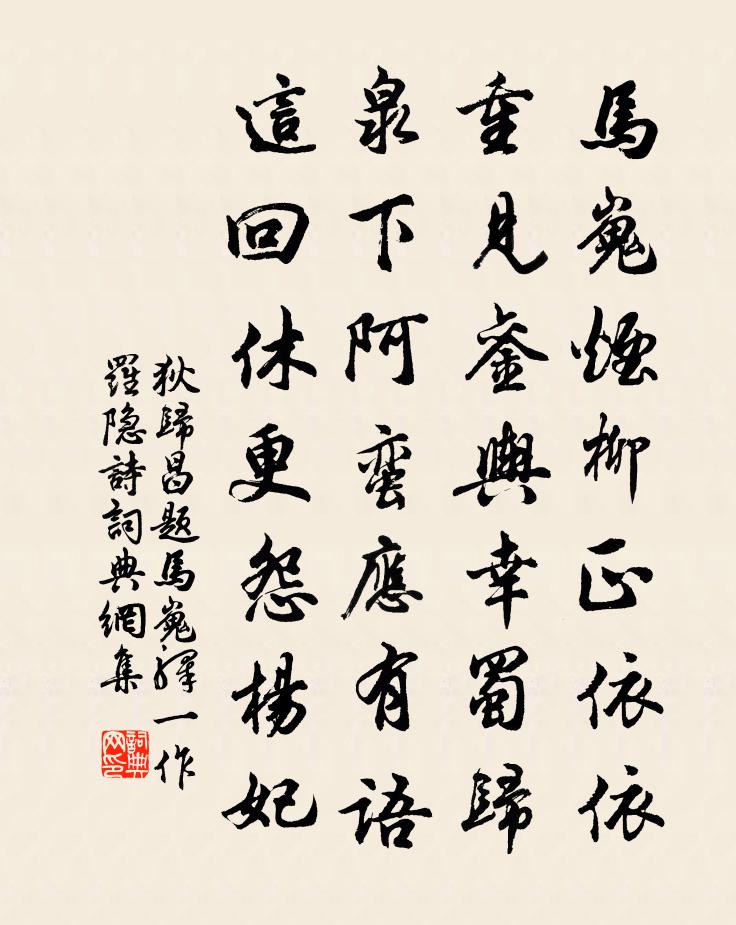 馬嵬煙柳正依依
重見銮輿幸蜀歸
泉下阿蛮應有語
這回休更怨楊妃
狄歸昌题馬嵬驛一作
羅隐詩詞典網集
詞典网印